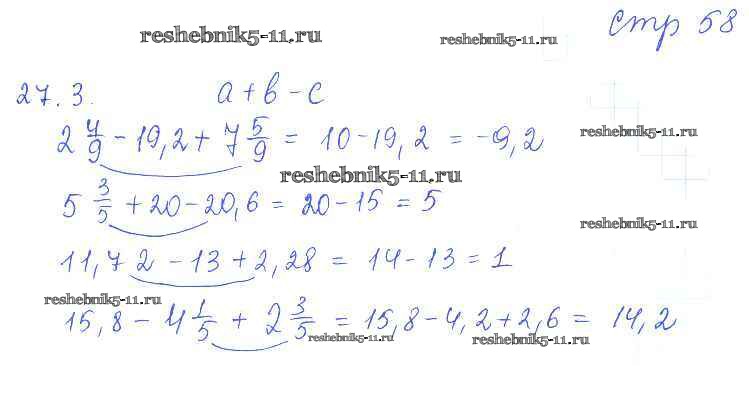 стр 58
reshebnik5-11.ru
reshebnik5-11.ru
27.3. a+b-c
2 4/9 - 19,2 + 7 5/9 = 10-19,2 = -9,2
reshebnik5-11.ru
reshebnik5-11.ru
5 3/5 + 20 - 20,6 = 20-15 = 5
reshebnik5-11.ru
11,72 - 13 + 2,28 = 14-13 = 1
reshebnik5-11.ru
15,8 - 4 1/5 + 2 3/5 = 15,8-4,2+2,6 = 14,2
reshebnik5-11.ru
reshebnik5-11.ru